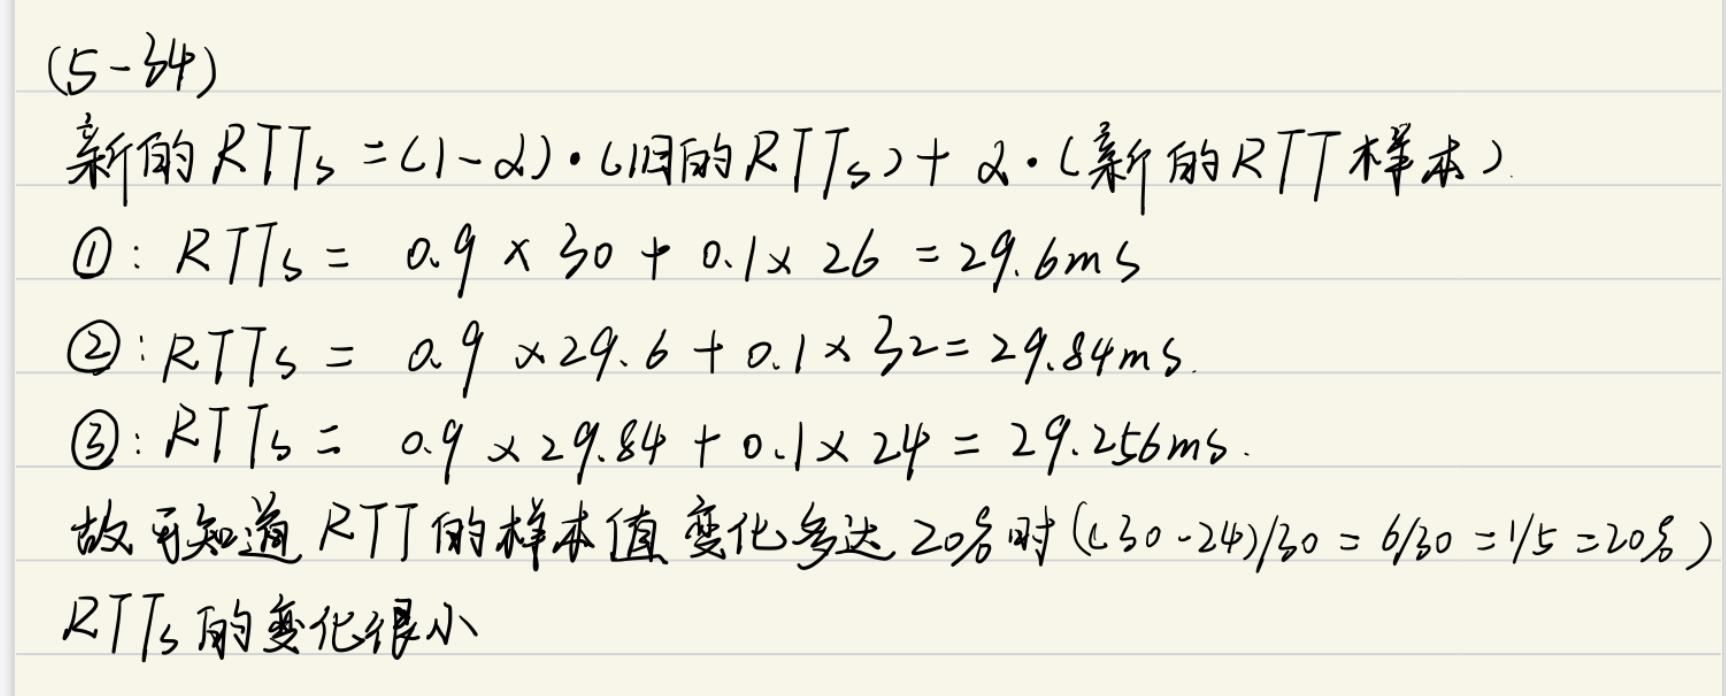 (5-34)
新的RTTs=(1-α)·(旧的RTTs)+α·(新的RTT样本).
①: RTTs= 0.9×30+0.1×26=29.6ms
②: RTTs= 0.9×29.6+0.1×32=29.84ms.
③: RTTs= 0.9×29.84+0.1×24=29.256ms.
故可知道RTT的样本值变化多达20%时((30-24)/30=6/30=1/5=20%)
RTTs的变化很小